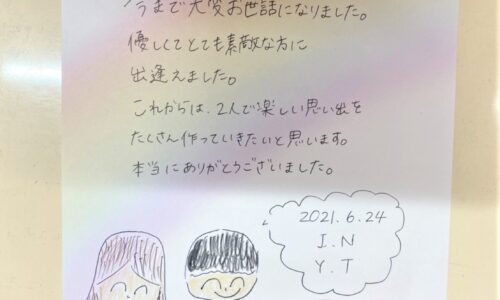 今まで大変お世話になりました。
優しくてとても素敵な方に
出逢えました。
これからは、2人で楽しい思い出を
たくさん作っていきたいと思います。
本当にありがとうございました。
2021.6.24
I.N
Y.T